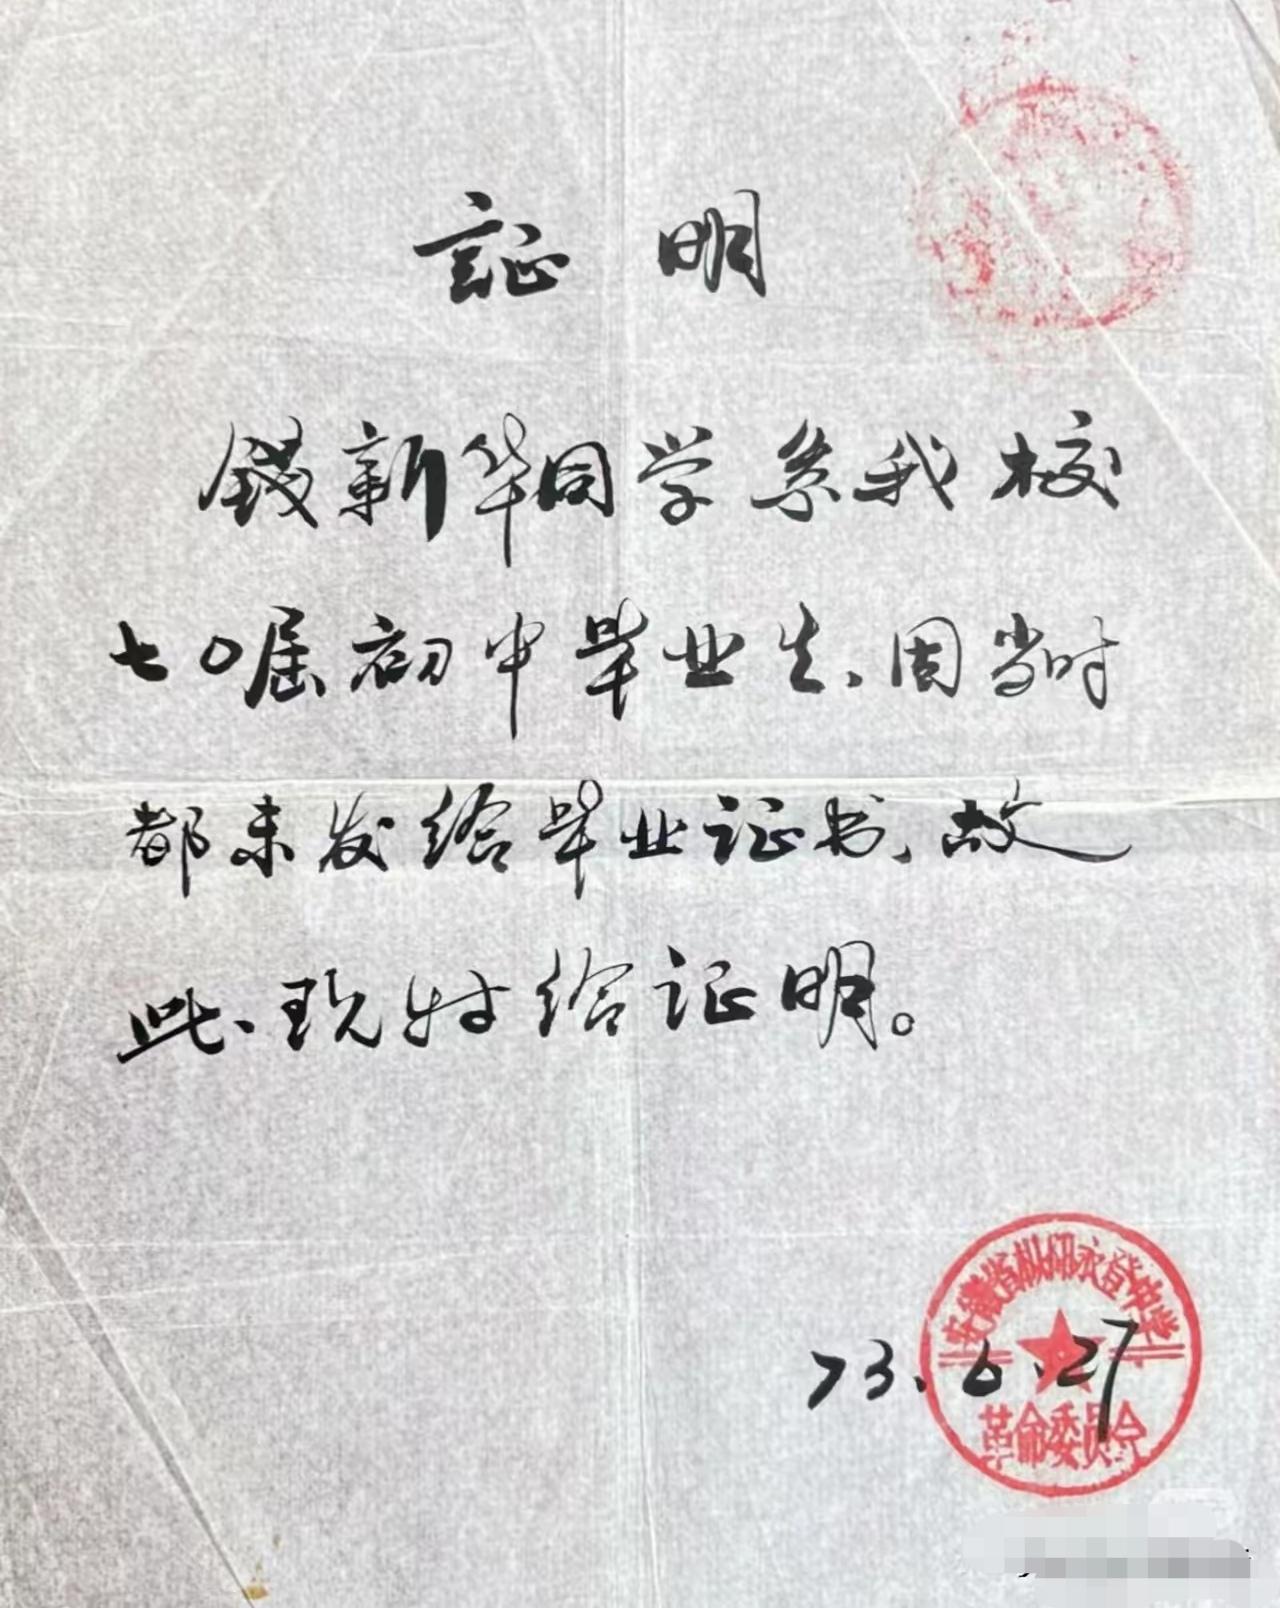 证明
钱新华同学系我校
七〇届初中毕业生、因当时
都未发给毕业证书、故
此、现特给证明。
安徽省枞阳永登中学
73.6.27
革命委员会